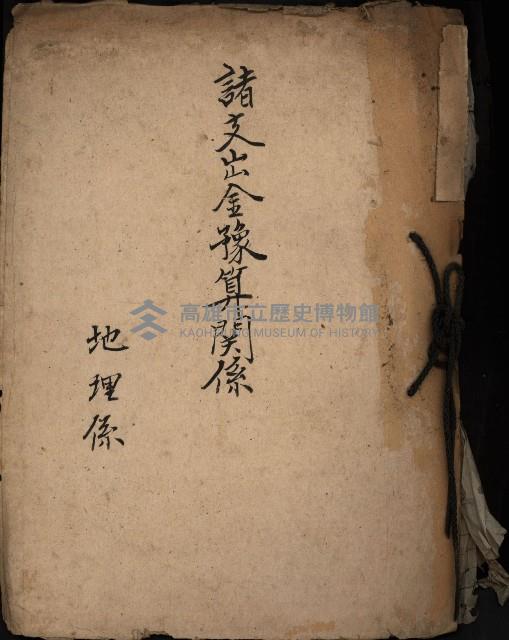 諸支出金豫算関係
地理係
高雄市立歷史博物館
KAOHSIUNG MUSEUM OF HISTORY